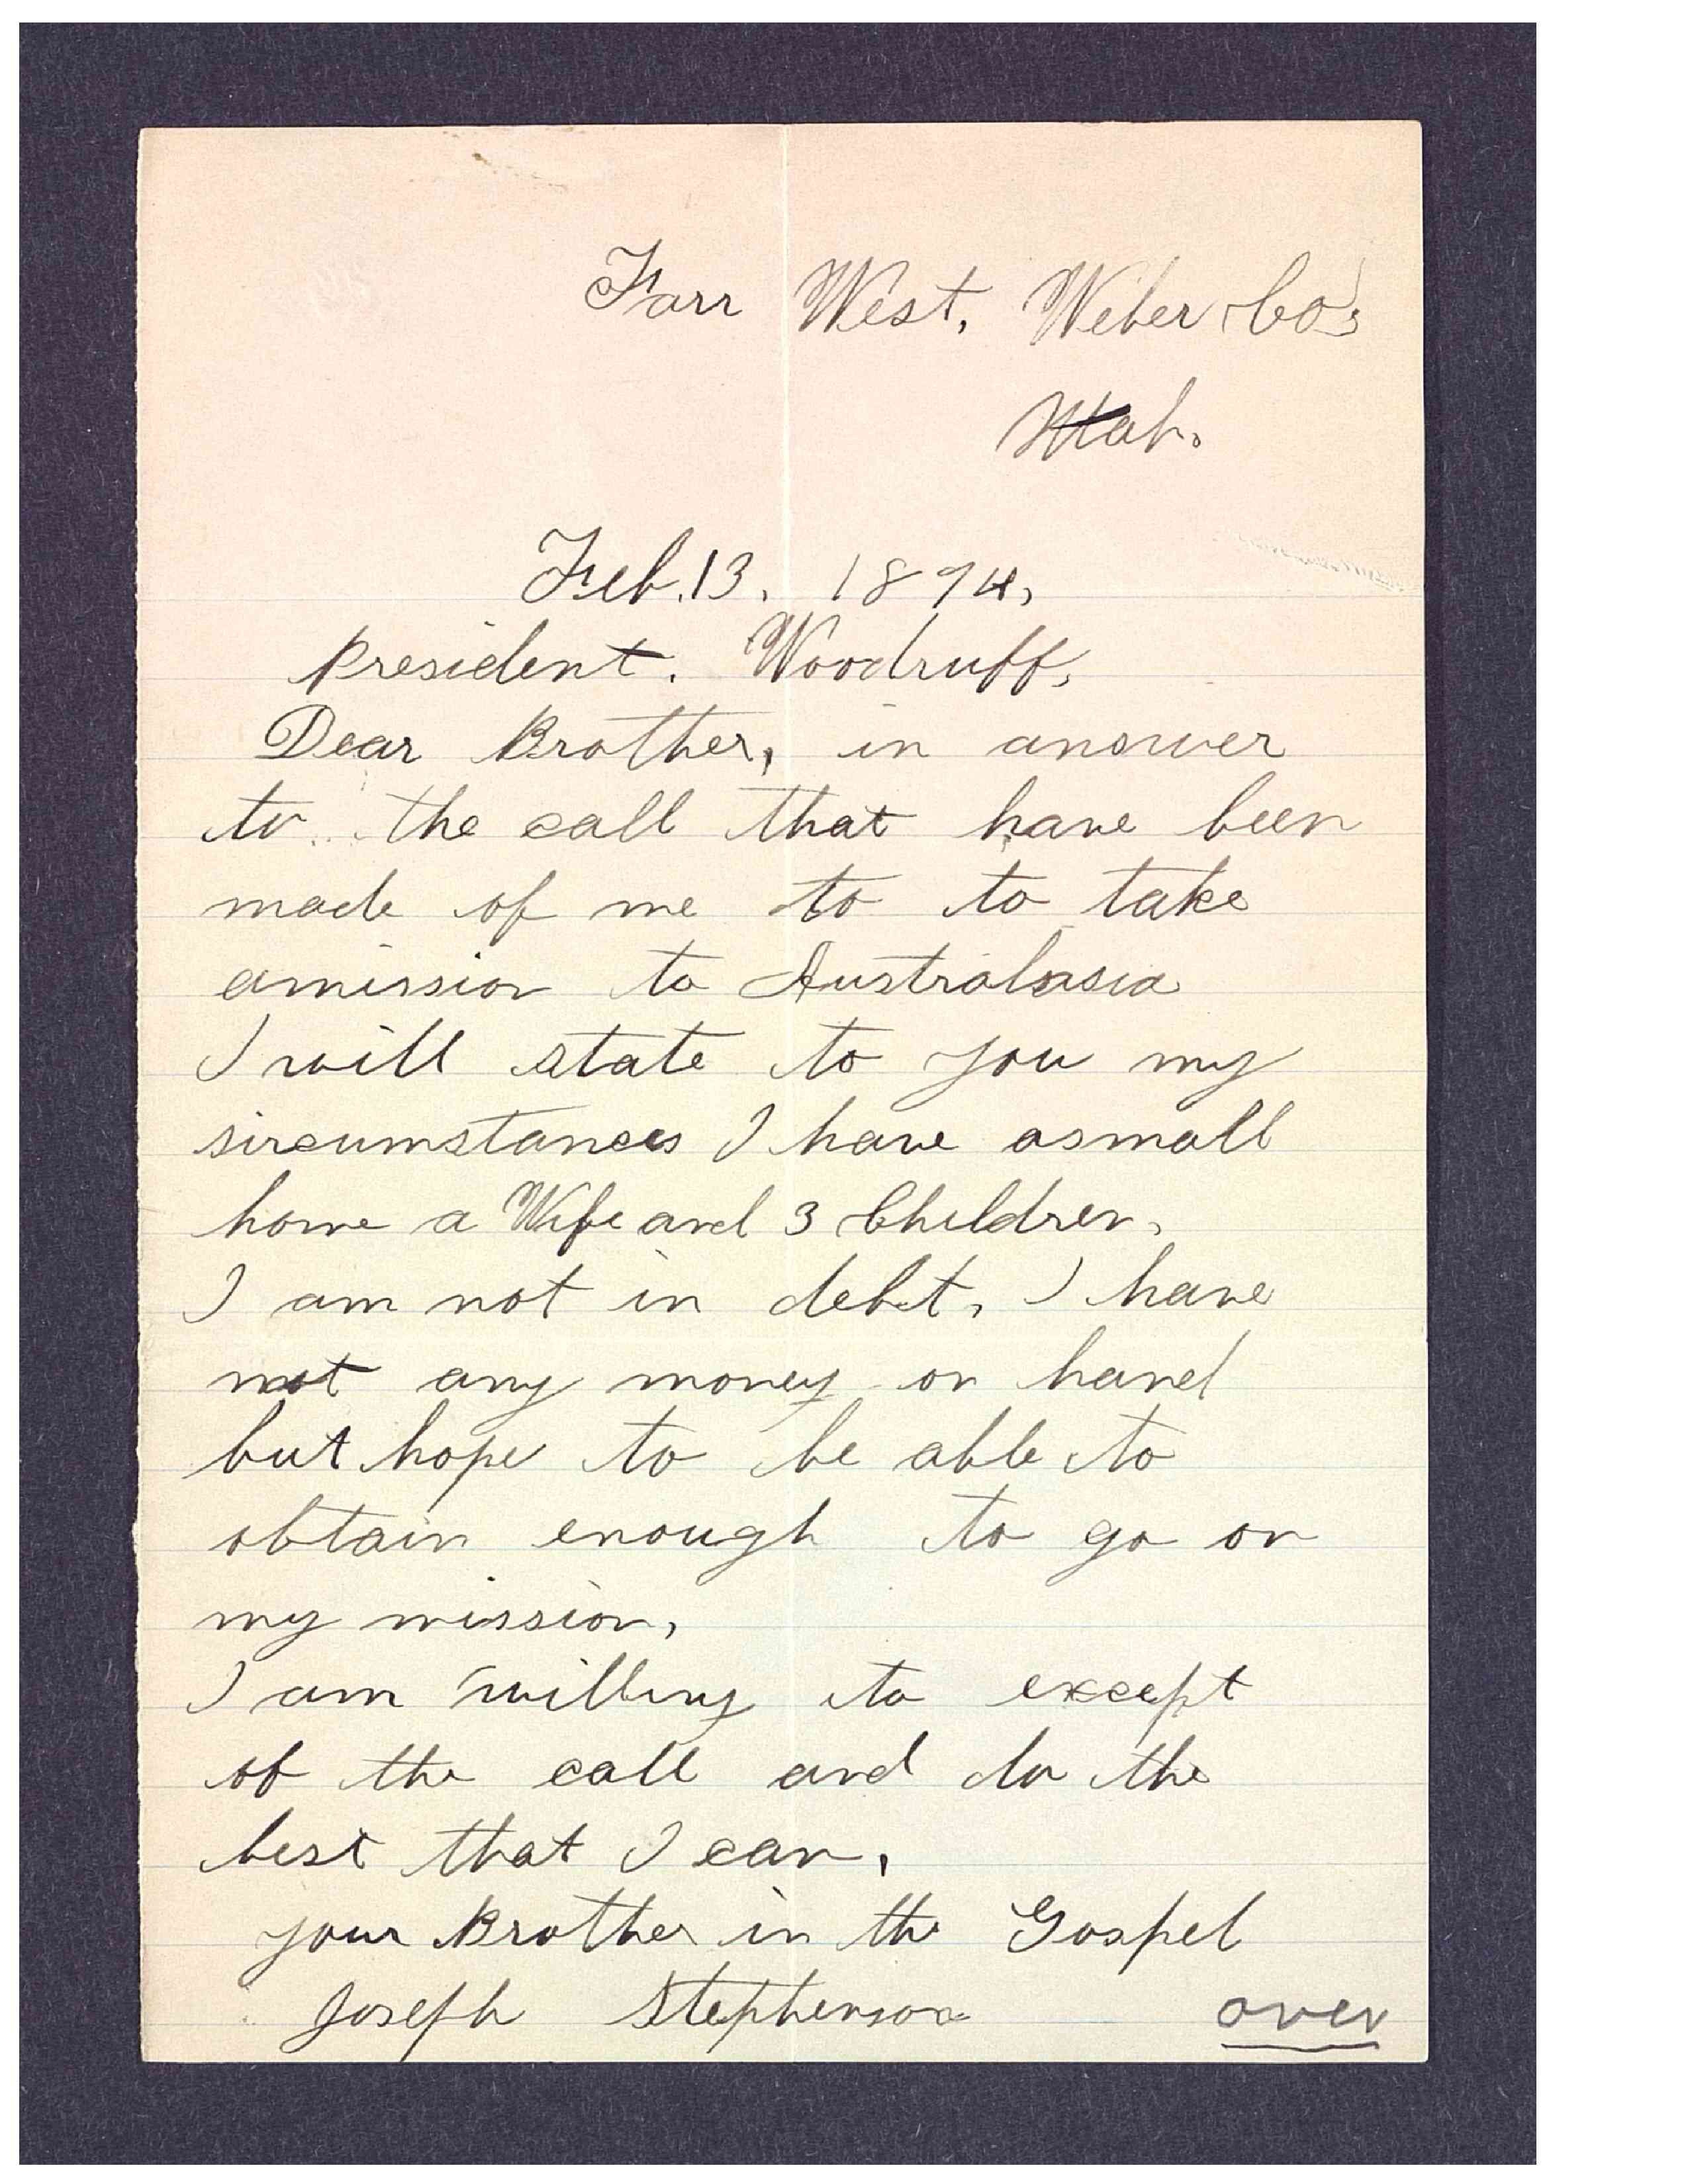 Farr West, Weber Co,
Utah.
Feb. 13, 1894,
President. Woodruff,
Dear Brother, in answer
to the call that have been
made of me to to take
amission to Australasia
I will state to you my
sircumstances I have asmall
home a Wife and 3 Children,
I am not in debt, I have
not any money on hand
but hope to be able to
obtain enough to go on
my mission,
I am willing to except
of the call and do the
best that I can,
your Brother in the Gospel
Joseph Stephenson
over